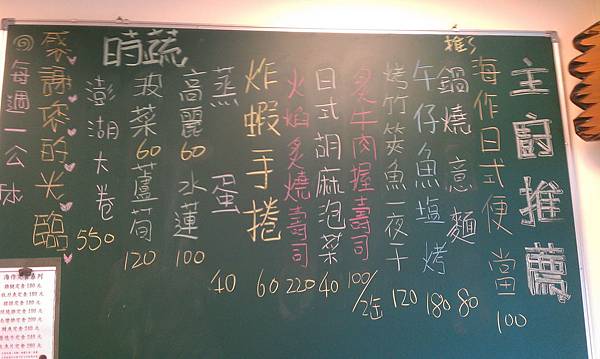 主廚推薦
海作日式便當 100
推
鍋燒意麵 80
午仔魚鹽烤 180
烤竹筴魚一夜干 120
炙牛肉握壽司 100/2缶
日式胡麻泡菜 40
火焰炙燒壽司 220
炸蝦手捲 60
蒸蛋 40
時蔬
高麗 60 水蓮 100
波菜 60 蘆筍 120
澎湖大卷 550
感謝您的光臨
每週一公休